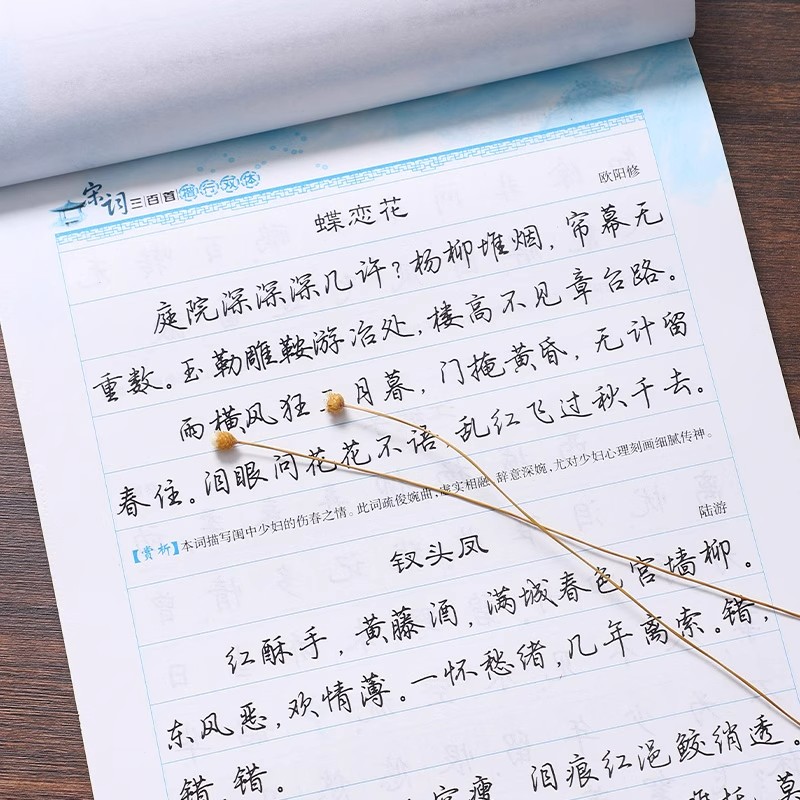 宋词三百首楷行双体
蝶恋花
欧阳修
庭院深深深几许？杨柳堆烟，帘幕无
重数。玉勒雕鞍游冶处，楼高不见章台路。
雨横风狂三月暮，门掩黄昏，无计留
春住。泪眼问花花不语，乱红飞过秋千去。
【赏析】本词描写闺中少妇的伤春之情。此词疏俊婉曲，虚实相融，辞意深婉，尤对少妇心理刻画细腻传神。
钗头凤
陆游
红酥手，黄藤酒，满城春色宫墙柳。
东风恶，欢情薄。一怀愁绪，几年离索。错，
错，错。
空瘦，泪痕红浥鲛绡透。
托，莫